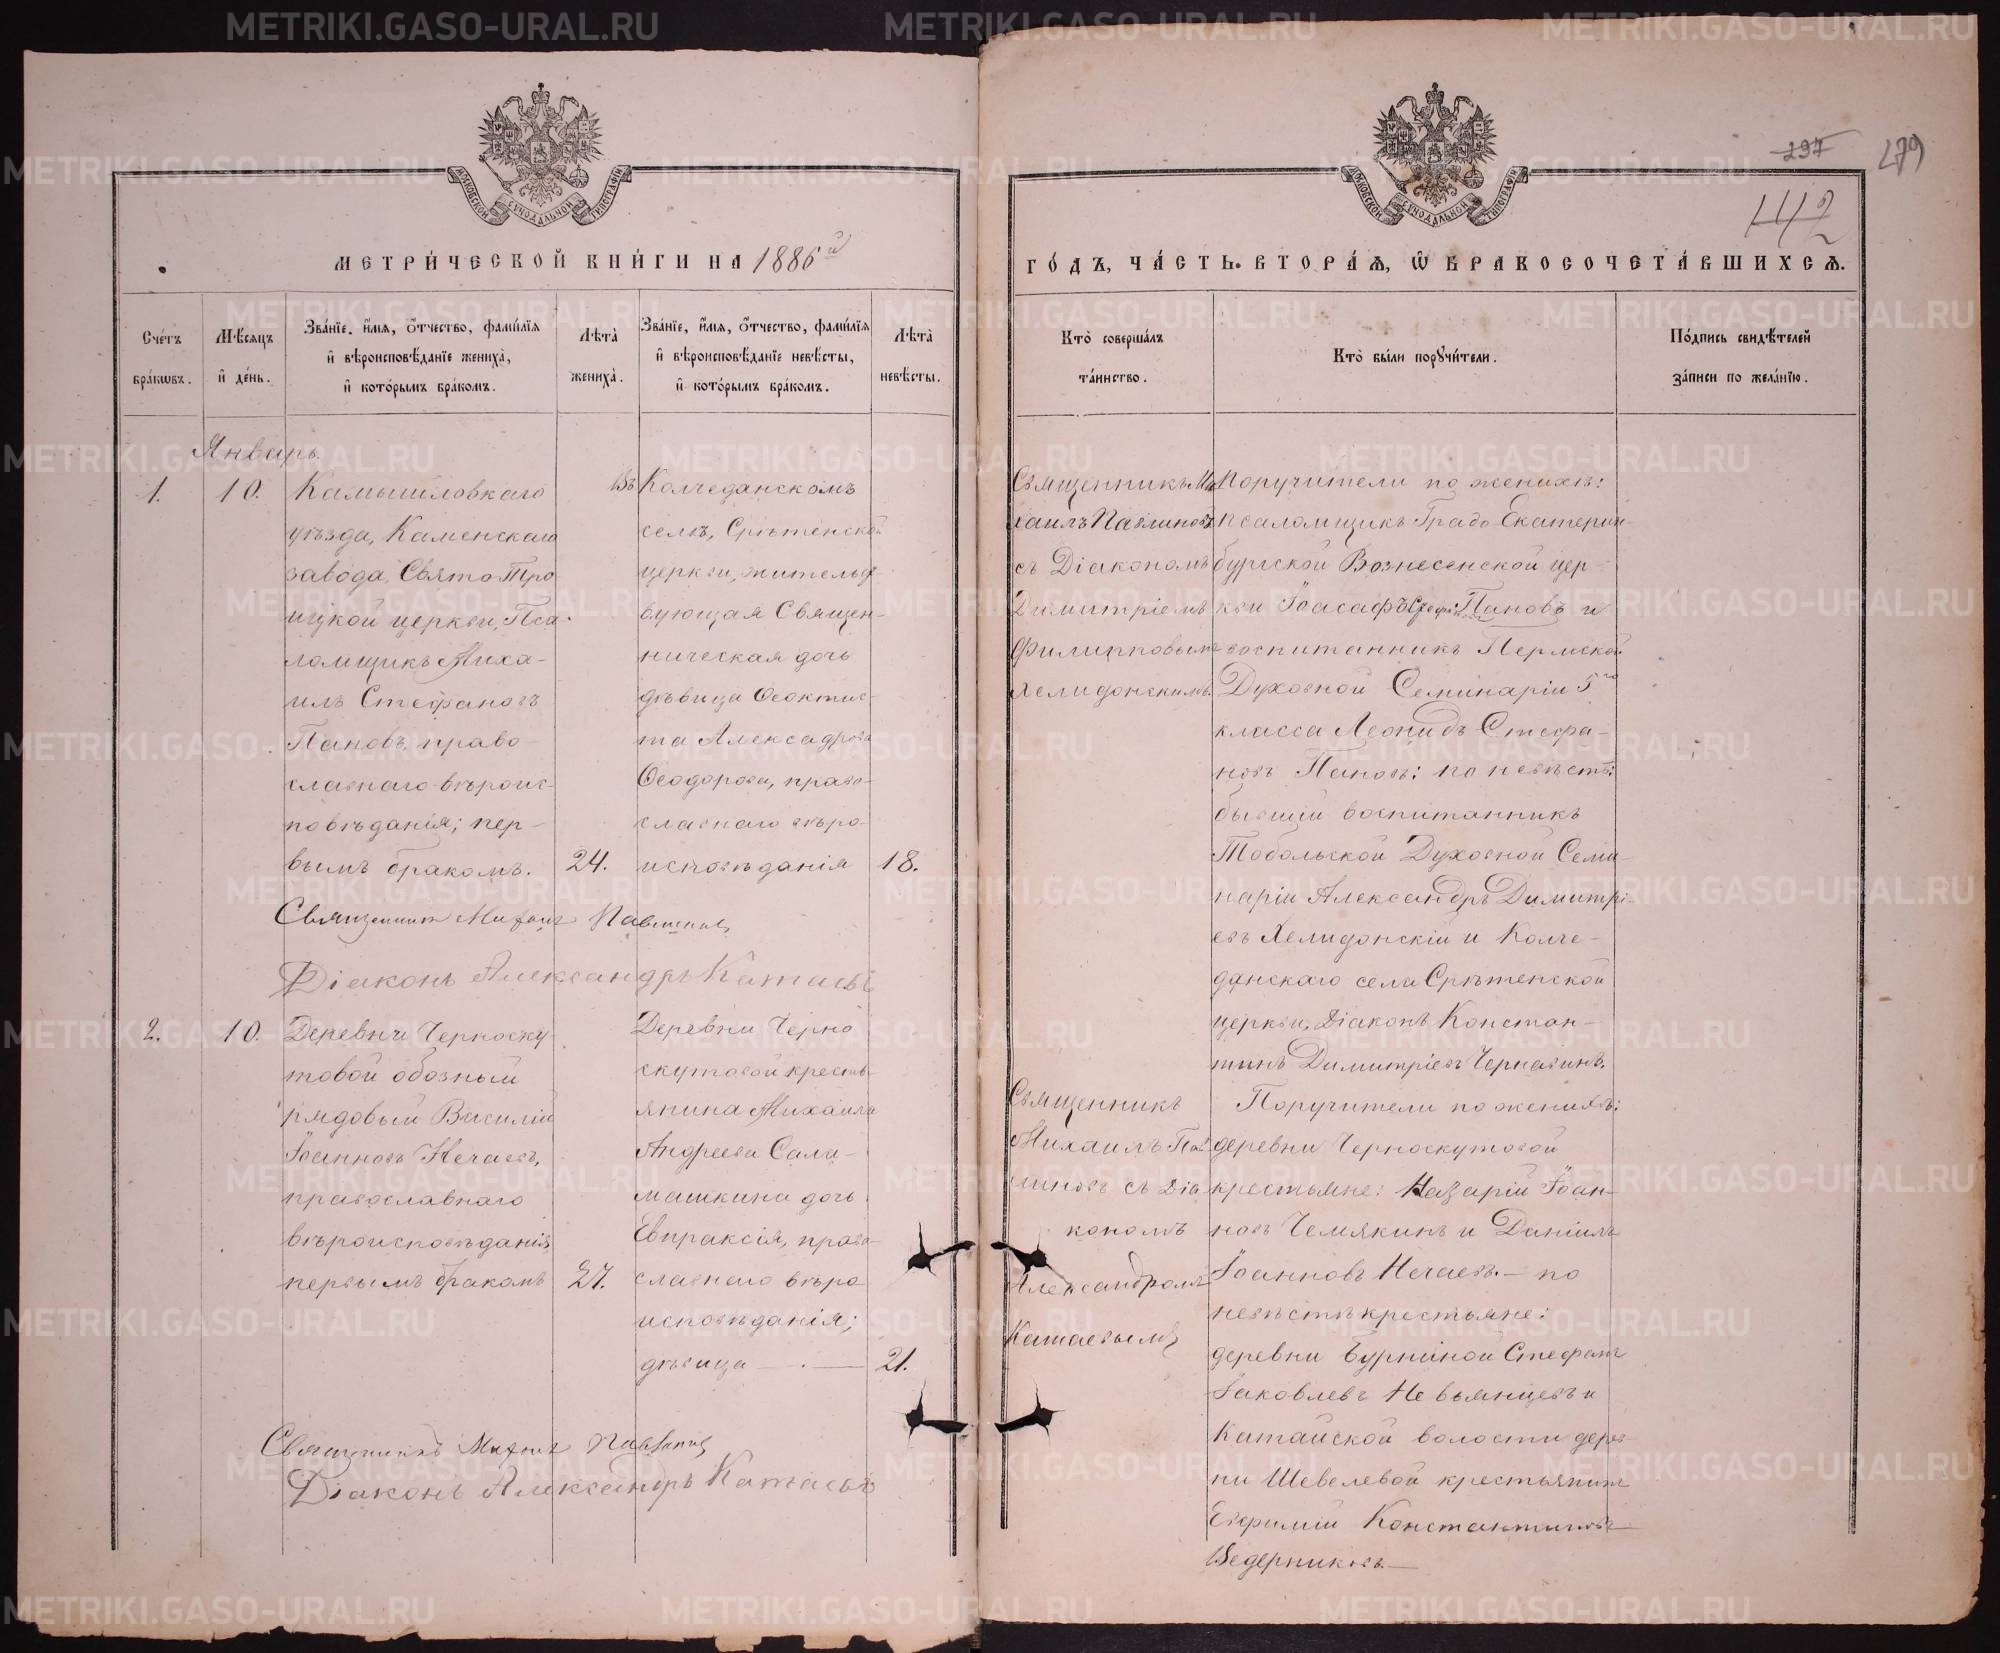 297
279
142
МОСКОВСКОЙ СѴНОДАЛЬНОЙ ТИПОГРАФІИ
МОСКОВСКОЙ СѴНОДАЛЬНОЙ ТИПОГРАФІИ
МЕТРИ́ЧЕСКОЙ КНИ́ГИ НА 1886й
ГО́ДЪ, ЧА́СТЬ ВТОРА́Ѧ, Ѡ БРАКОСОЧЕТА́ВШИХСѦ.
Сче́тъ бра́кѡвъ.
Мѣ́сѧцъ и҆ де́нь.
Зва́нїе, и҆́мѧ, ѻ҆́тчество, фами́лїѧ и҆ вѣроисповѣ́данїе жениха̀, и҆ кото́рымъ бра́комъ.
Лѣ́та жениха̀.
Зва́нїе, и҆́мѧ, ѻ҆́тчество, фами́лїѧ и҆ вѣроисповѣ́данїе невѣ́сты, и҆ кото́рымъ бра́комъ.
Лѣ́та невѣ́сты.
Кто̀ соверша́лъ та́инство.
Кто̀ бы́ли порꙋчи́тели.
По́дпись свидѣ́телей за́писи по жела́нїю.
Январь
1.
10.
Камышловкаго
уѣзда, Каменскаго
завода, Свято Тро
ицкой церкви, Пса-
ломщикъ Миха-
илъ Стефановъ
Пановъ, право-
славнаго вѣроис-
повѣданія; пер-
вымъ бракомъ.
24.
Въ Колчеданскомъ
селѣ, Срѣтенской
церкви, жительс-
вующая Священ-
ническая дочь
дѣвица Ѳеоктис-
та Алексадрова
Ѳеодорова, право-
славнаго вѣро-
исповѣданія
18.
Священникъ Ми
хаилъ Павлиновъ
съ Діакономъ
Димитріемъ
Филипповымъ
Хелидонскимъ.
Поручители по женихѣ:
псаломщикъ Градо-Екатерин-
бургской Вознесенской цер-
кви Іоасафъ Стефановъ Пановъ и
воспитанникъ Пермской
Духовной Семинаріи 5го
класса Леонидъ Стефа-
новъ Пановъ; по невѣстѣ:
бывшій воспитанникъ
Тобольской Духовной Семи-
наріи Александръ Димитрі-
евъ Хелидонскій и Колче-
данскаго села Срѣтенской
церкви, Діаконъ Констан-
тинъ Димитріевъ Чернавинъ.
Священникъ Михаилъ Павлиновъ
Діаконъ Александръ Катаевъ
2.
10.
Деревни Черноску
товой обозный
рядовый Василій
Іоанновъ Нечаевъ,
православнаго
вѣроисповѣданія,
первымъ бракомъ
27.
Деревни Черно
скутовой кресть-
янина Михаила
Андреева Сала-
машкина дочь
Евпраксія, право-
славнаго вѣро
исповѣданія;
дѣвица
21.
Священникъ
Михаилъ Пав
линовъ съ Діа
кономъ
Александромъ
Катаевымъ
Поручители по женихѣ:
деревни Черноскутовой
крестьяне: Назарій Іоан-
новъ Чемякинъ и Даніилъ
Іоанновъ Нечаевъ.— по
невѣстѣ крестьяне:
деревни Бурниной Стефанъ
Іаковлевъ Невьянцевъ и
Катайской волости дерев-
ни Шевелевой крестьянинъ
Евфимій Константиновъ
Ведерниковъ.—
Священникъ Михаилъ Павлиновъ
Діаконъ Александръ Катаевъ
METRIKI.GASO-URAL.RU